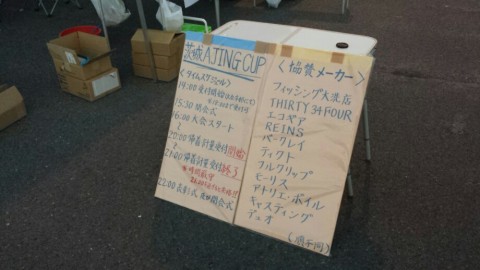 茨城 AJING CUP
<タイムスケジュール>
14:00 受付開始
15:30 開会式
16:00 大会スタート
20:00 帰着計量受付開始
21:00 帰着計量受付終了
※時間厳守
22:00 表彰式 閉会式
<協賛メーカー>
フィッシング大洗店
THIRTY34FOUR
エコギア
REINS
バークレイ
ティクト
フルクリップ
モーリス
アトリエ・ボイル
キャスティング
デュオ
(順不同)